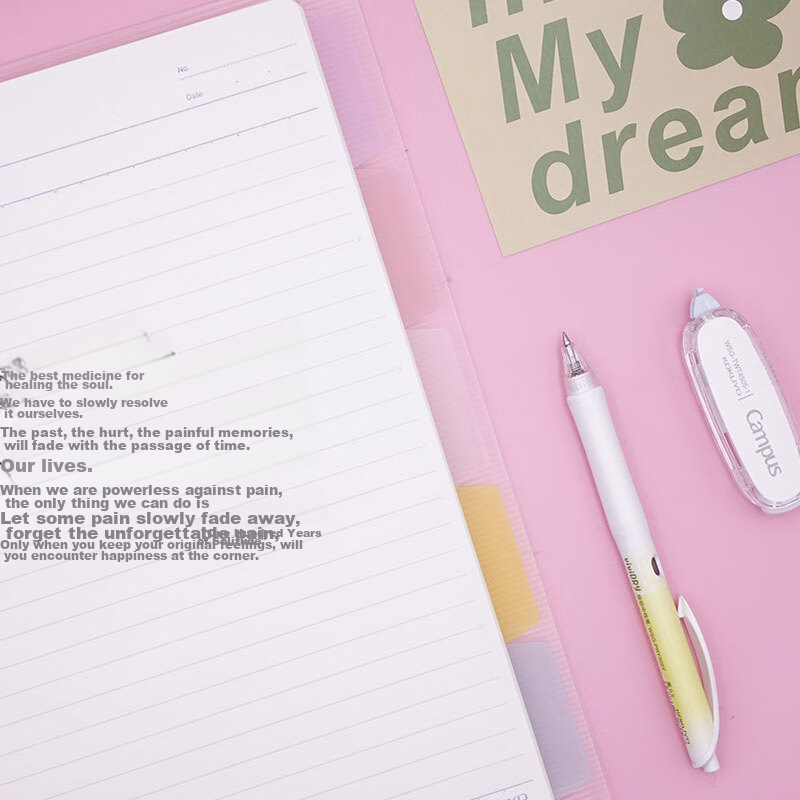 My
dream
No.
Date
WSG-TW74505-1
KOKUYO
Campus
The best medicine for
healing the soul.
We have to slowly resolve
it ourselves.
The past, the hurt, the painful memories,
will fade with the passage of time.
Our lives.
When we are powerless against pain,
the only thing we can do is
Let some pain slowly fade away,
forget the unforgettable pain,
Years
Only when you keep your original feelings, will
you encounter happiness at the corner.
ViviDRY
KOKUYO